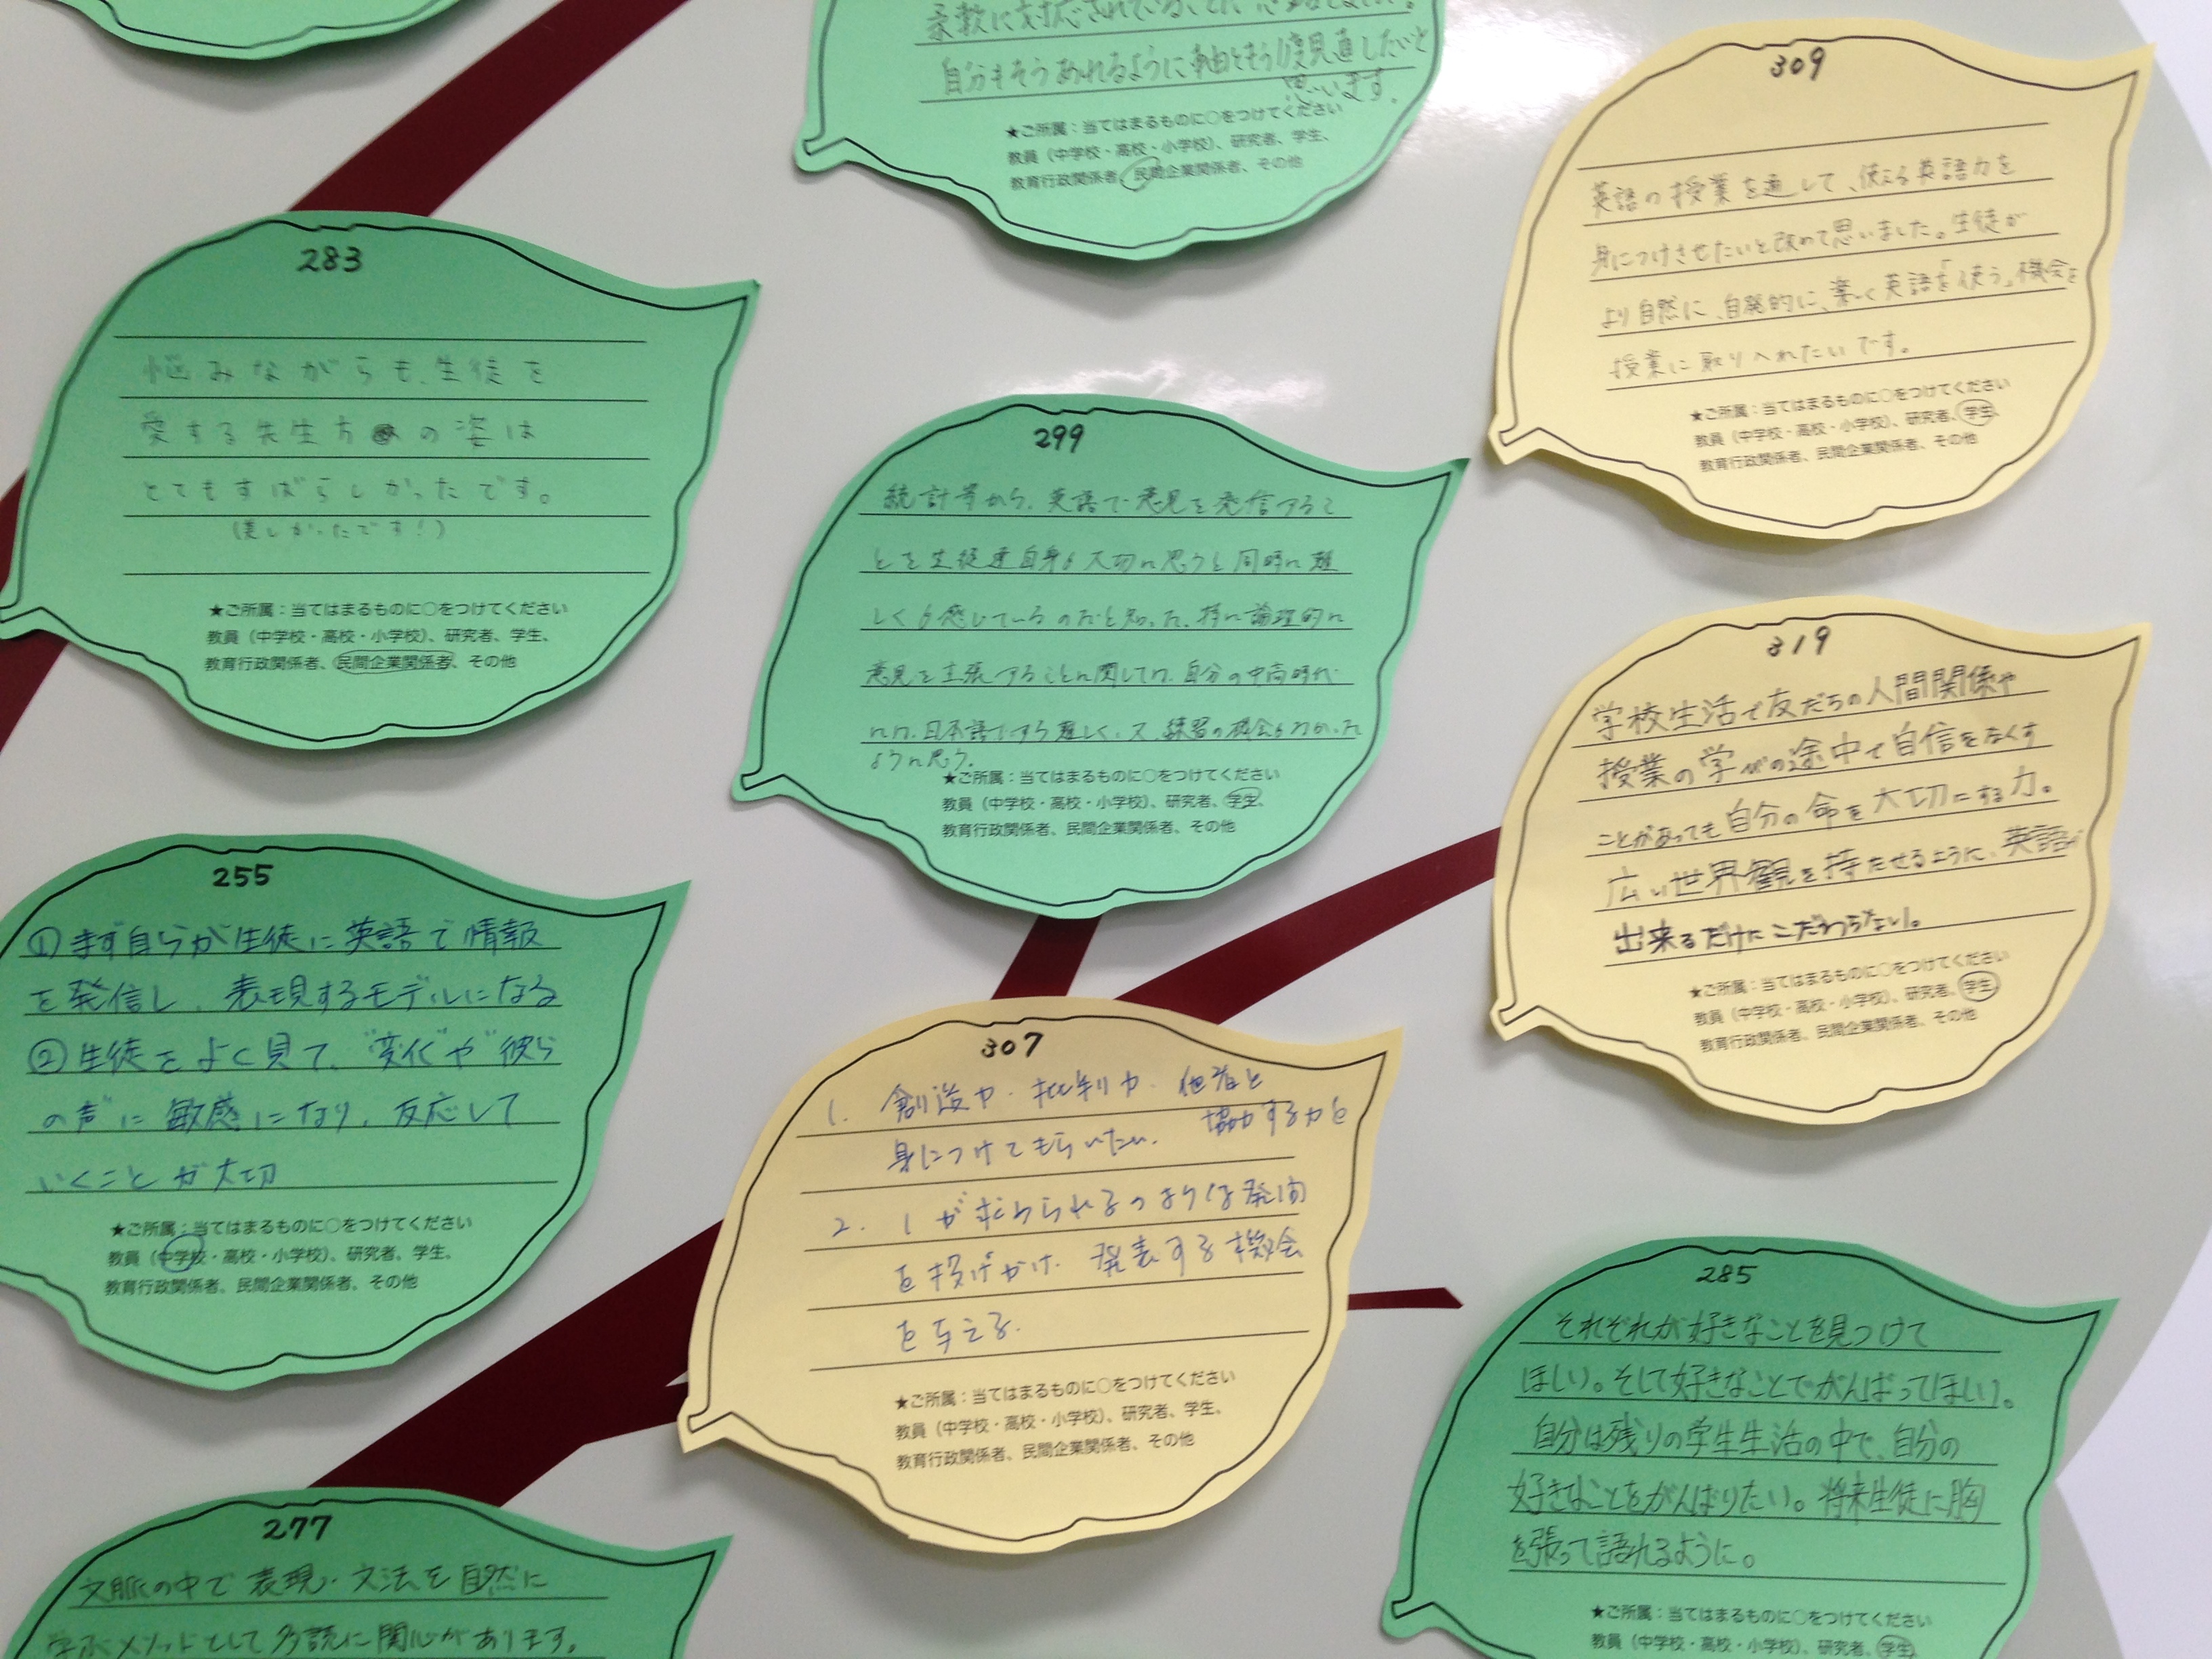 自分もそうあれるように軸をもう1度見直したいと
思います。
★ご所属：当てはまるものに○をつけてください
教員（中学校・高校・小学校）、研究者、学生、
教育行政関係者、民間企業関係者、その他
309
英語の授業を通して、使える英語力を
身につけさせたいと改めて思いました。生徒が
より自然に、自発的に、楽しく英語を「使う」機会を
授業に取り入れたいです。
★ご所属：当てはまるものに○をつけてください
教員（中学校・高校・小学校）、研究者、学生、
教育行政関係者、民間企業関係者、その他
283
悩みながらも、生徒を
愛する先生方の姿は
とてもすばらしかったです。
（美しかったです！）
★ご所属：当てはまるものに○をつけてください
教員（中学校・高校・小学校）、研究者、学生、
教育行政関係者、民間企業関係者、その他
299
統計等から、英語で意見を発信するこ
とを生徒達自身も大切に思うと同時に難
しくも感じているのだと知った。特に論理的に
意見を主張することに関しては、自分の中高時代
には、日本語ですら難しく、又、練習の機会もなかった
ように思う。
★ご所属：当てはまるものに○をつけてください
教員（中学校・高校・小学校）、研究者、学生、
教育行政関係者、民間企業関係者、その他
319
学校生活で友だちの人間関係や
授業の学びの途中で自信をなくす
ことがあっても自分の命を大切にする力。
広い世界観を持たせるように、英語が
出来るだけにこだわらない。
★ご所属：当てはまるものに○をつけてください
教員（中学校・高校・小学校）、研究者、学生、
教育行政関係者、民間企業関係者、その他
255
①まず自らが生徒に英語で情報
を発信し、表現するモデルになる
②生徒をよく見て、"変化"や"彼ら
の声"に敏感になり、反応して
いくことが大切
★ご所属：当てはまるものに○をつけてください
教員（中学校・高校・小学校）、研究者、学生、
教育行政関係者、民間企業関係者、その他
307
1. 創造力・批判力・他者と
協力する力を
身につけてもらいたい。
2. 1が求められるのような発問
を投げかけ、発表する機会
を与える。
★ご所属：当てはまるものに○をつけてください
教員（中学校・高校・小学校）、研究者、学生、
教育行政関係者、民間企業関係者、その他
285
それぞれが好きなことを見つけて
ほしい。そして好きなことでがんばってほしい。
自分は残りの学生生活の中で、自分の
好きなことをがんばりたい。将来生徒に胸
を張って語れるように。
★ご所属：当てはまるものに○をつけてください
教員（中学校・高校・小学校）、研究者、学生
277
文脈の中で表現・文法を自然に
学ぶメソッドとして多読に関心があります。